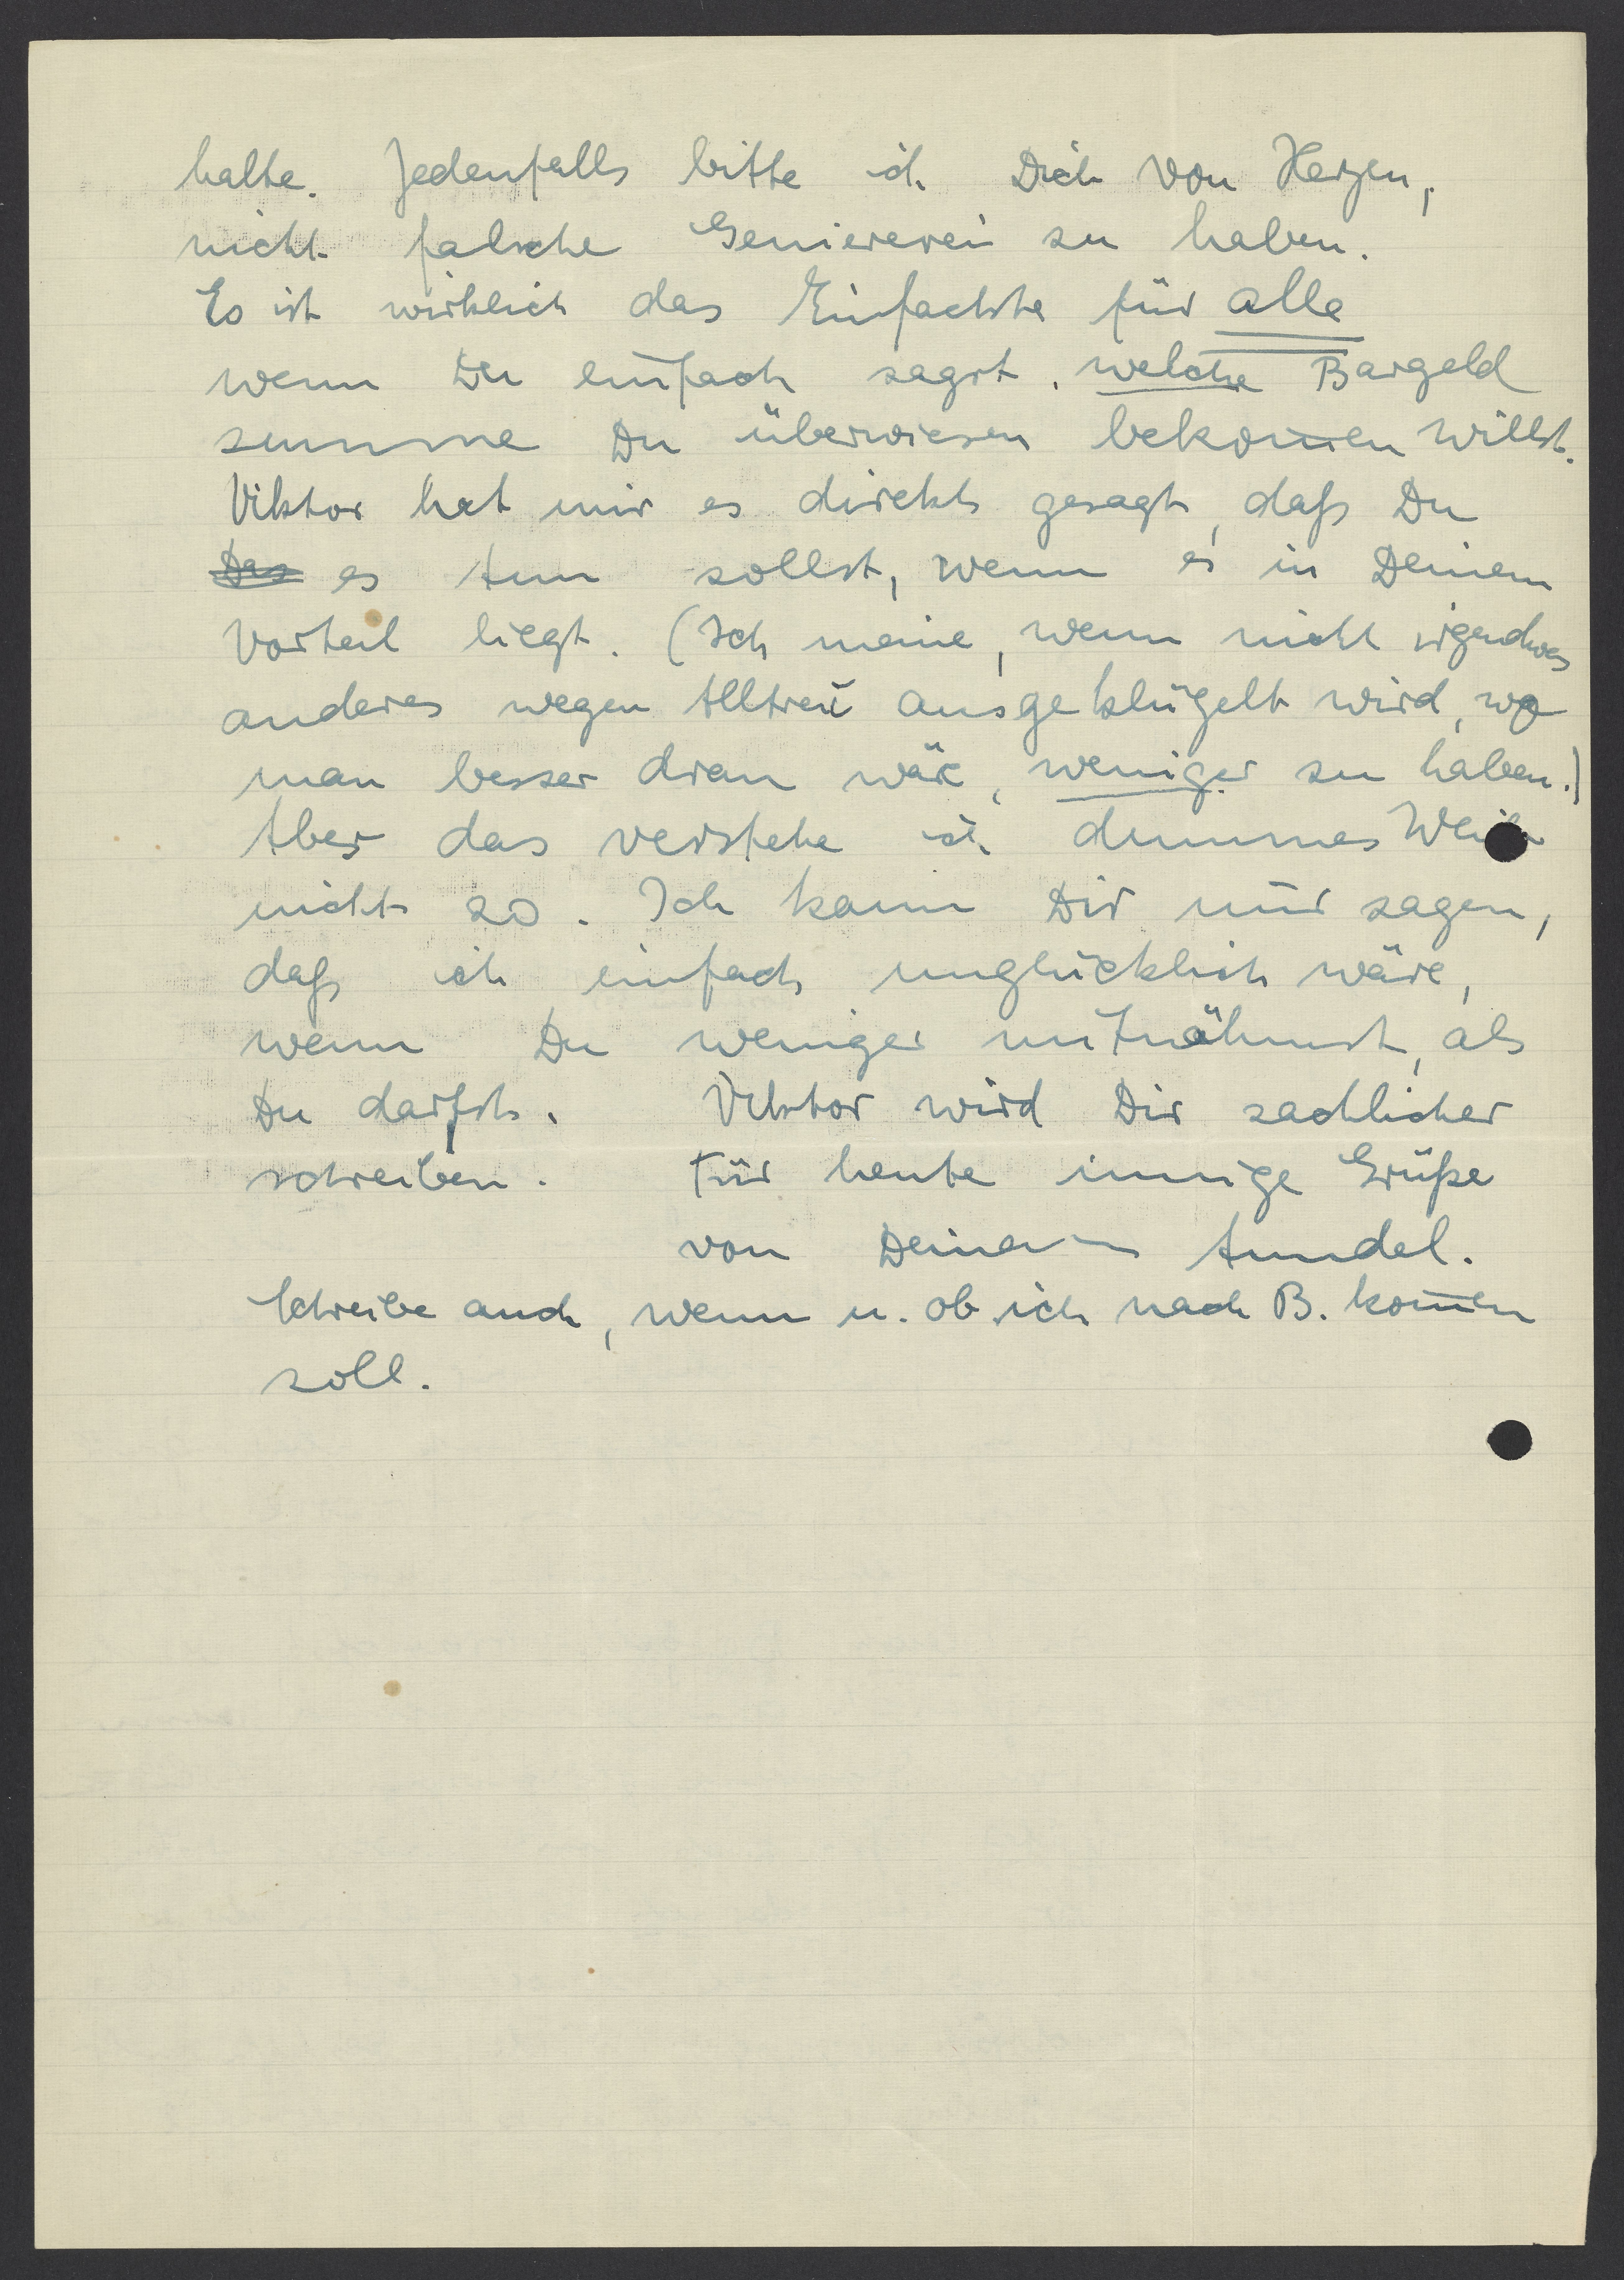 halte. Jedenfalls bitte ich Dich von Herzen,
nicht falsche Geniererei zu haben.
Es ist wirklich das Einfachste für alle
wenn Du einfach sagst, welche Bargeld
summe Du überwiesen bekom̅en willst.
Viktor hat mir es direkt gesagt, daß Du
Das es tun sollst, wenn es in Deinem
Vorteil liegt. (Ich meine, wenn nicht irgendwas
anderes wegen Alltreu ausgeklügelt wird, wo
man besser dran wäre, weniger zu haben.)
Aber das verstehe ich dummes Weib
nicht so. Ich kann Dir nur sagen,
daß ich einfach unglücklich wäre,
wenn Du weniger mitnähmst, als
Du darfst. Viktor wird Dir sachlicher
schreiben. Für heute innige Grüße
von Deiner Anndel.
Schreibe auch, wenn u. ob ich nach B. kom̅en
soll.